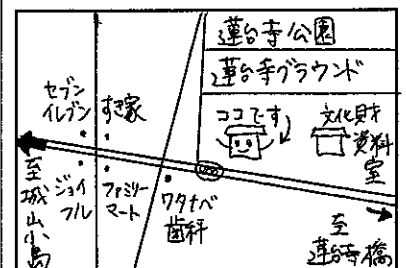 蓮台寺公園
蓮台寺グラウンド
セブン
イレブン
すき家
ココです
文化財
資料
室
至
城
山
小
島
ジョイ
フル
ファミリー
マート
ワタナベ
歯科
至
蓮台寺橋